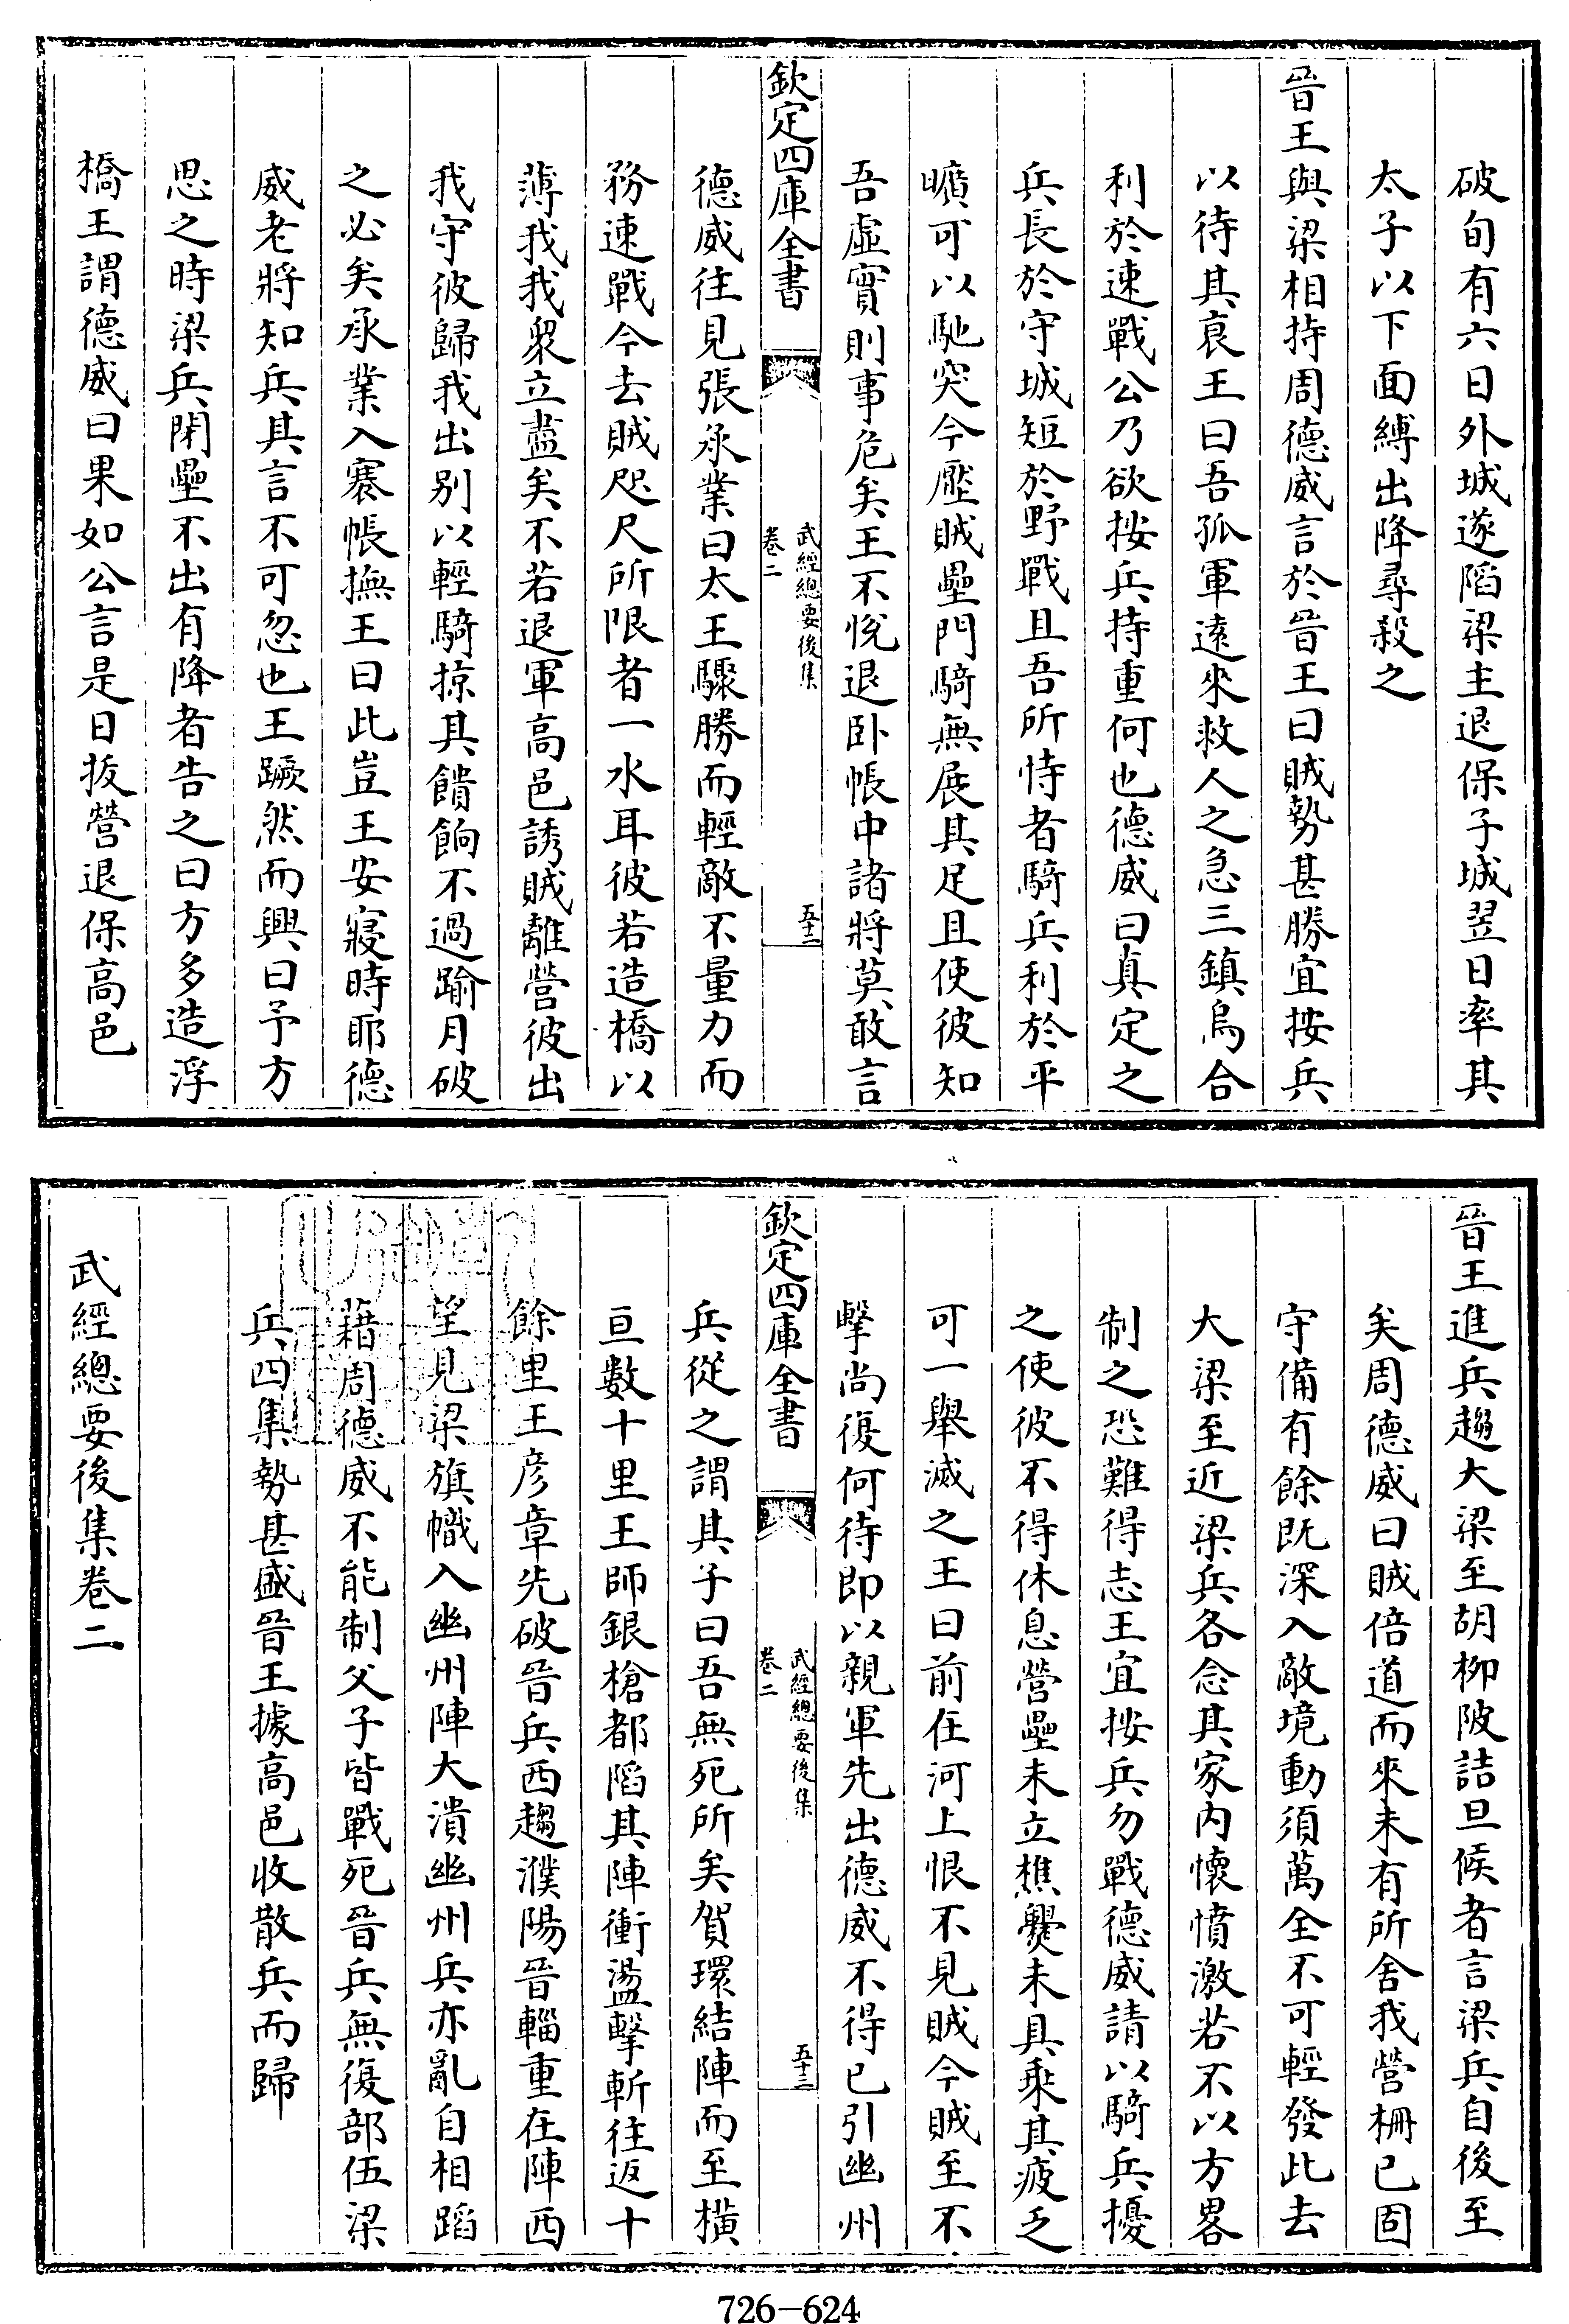 破旬有六日外城遂陷梁主退保子城翌日率其
太子以下面縛出降尋殺之
晉王與梁相持周德威言於晉王曰賊勢甚勝宜按兵
以待其衰王曰吾孤軍遠來救人之急三鎮烏合
利於速戰公乃欲按兵持重何也德威曰真定之
兵長於守城短於野戰且吾所恃者騎兵利於平
曠可以馳突今壓賊壘門騎無展其足且使彼知
吾虛實則事危矣王不悅退卧帳中諸將莫敢言
欽定四庫全書
武經總要後集
卷二
五十二
德威往見張承業曰大王驟勝而輕敵不量力而
務速戰今去賊咫尺所限者一水耳彼若造橋以
薄我我衆立盡矣不若退軍高邑誘賊離營彼出
我守彼歸我出别以輕騎掠其饋餉不過踰月破
之必矣承業入褰帳撫王曰此豈王安寢時耶德
威老將知兵其言不可忽也王蹶然而興曰予方
思之時梁兵閉壘不出有降者告之曰方多造浮
橋王謂德威曰果如公言是日拔營退保高邑
晉王進兵趨大梁至胡柳陂詰旦候者言梁兵自後至
矣周德威曰賊倍道而來未有所舍我營柵已固
守備有餘既深入敵境動須萬全不可輕發此去
大梁至近梁兵各念其家内懷憤激若不以方畧
制之恐難得志王宜按兵勿戰德威請以騎兵擾
之使彼不得休息營壘未立樵爨未具乘其疲乏
可一舉滅之王曰前在河上恨不見賊今賊至不
擊尚復何待即以親軍先出德威不得已引幽州
欽定四庫全書
武經總要後集
卷二
五十三
兵從之謂其子曰吾無死所矣賀環結陣而至横
亘數十里王師銀槍都陷其陣衝盪擊斬往返十
餘里王彦章先破晉兵西趨濮陽晉輜重在陣西
望見梁旗幟入幽州陣大潰幽州兵亦亂自相蹈
藉周德威不能制父子皆戰死晉兵無復部伍梁
兵四集勢甚盛晉王據高邑收散兵而歸
武經總要後集卷二
726-624